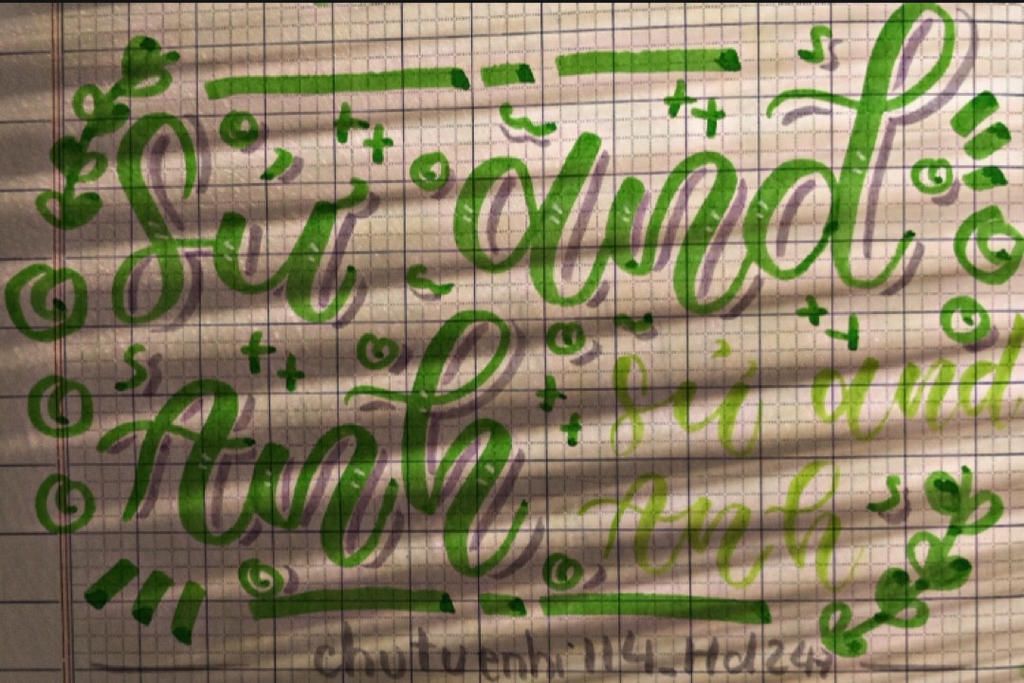 and
Anh
and
Anh
chutuenhi114_Hd247